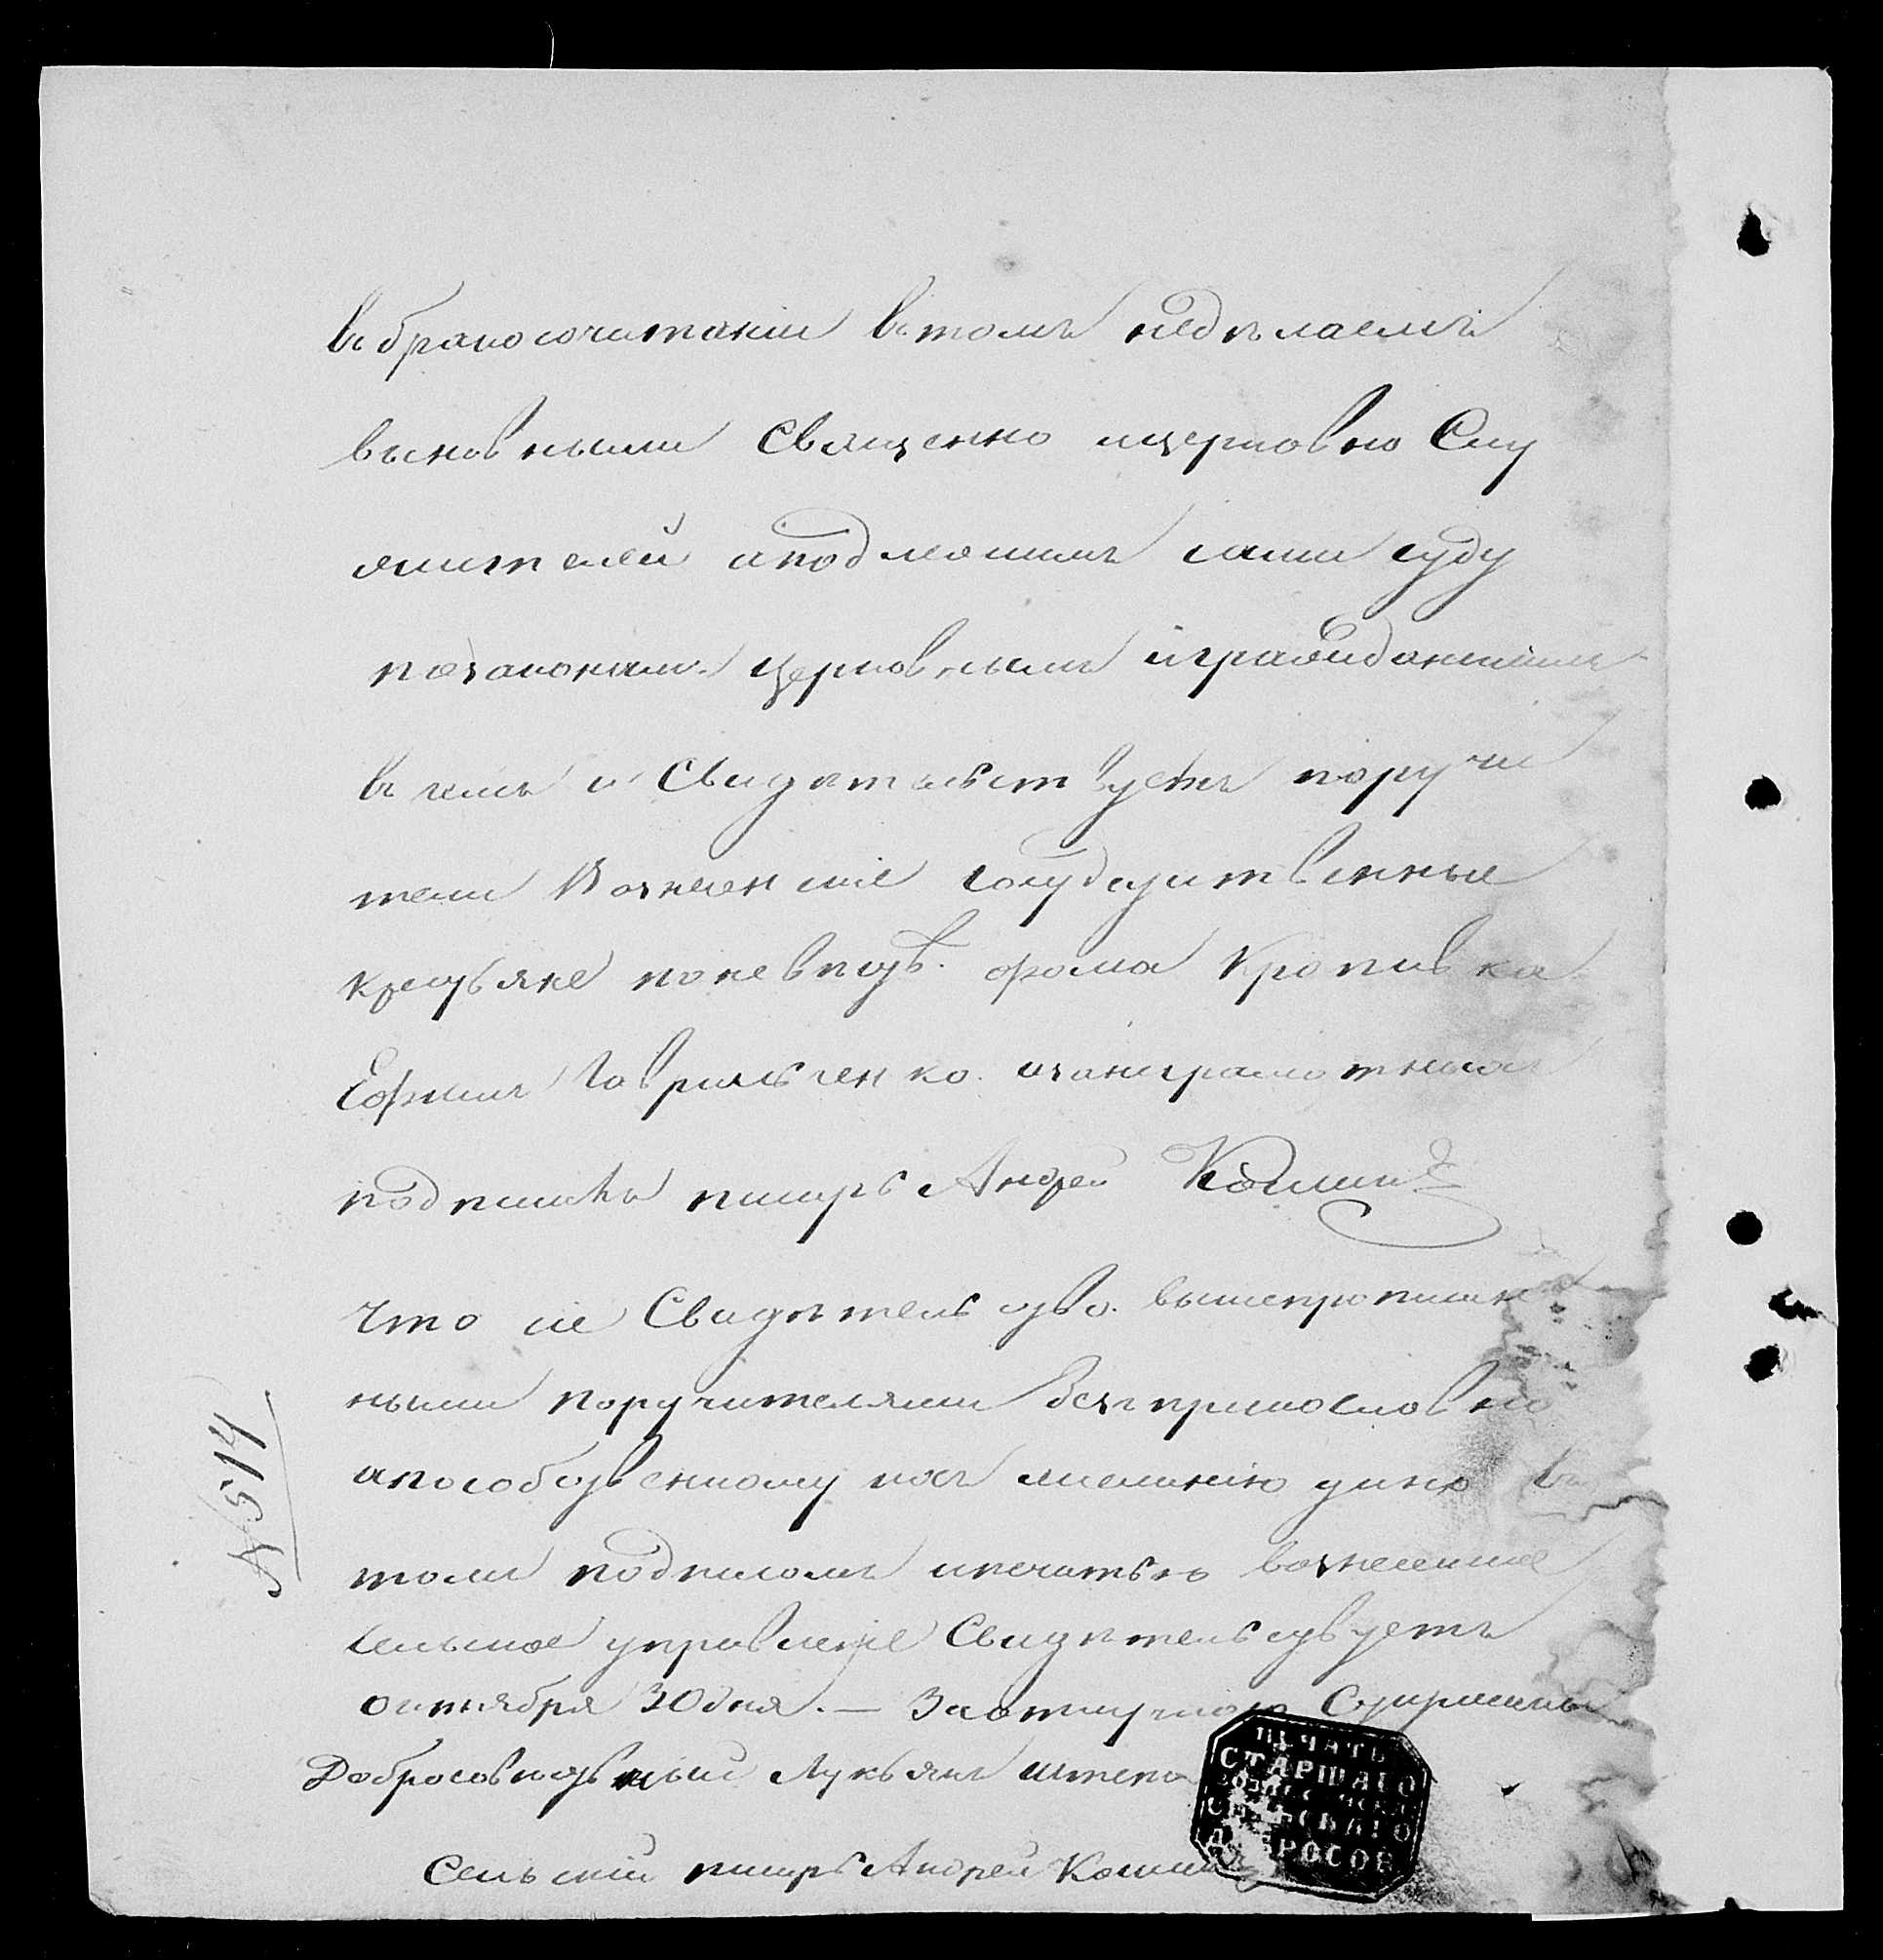 въ бракосочитаніи въ томъ недѣлаемъ
выновными Священно ицерковно Слу
жителей аподлежимъ сами суду
позаконамъ церковнымъ игражданскимъ
въ чемъ и Свидѣтельствуетъ поручи
тели Вознесенскіе государственные
крестьяне Фома Кропивка
Ефимъ Гаврильченко. неграмотныхъ
подписалъ писарь Андрей
Что сіе Свидѣтельство. вышепрописан
ными поручителями безприкословно
апособственному ихъ желанію учин въ
томъ подписомъ ипечатью вознесенское
сельское управленіе Свидѣтельствуетъ
октября 30 дня. — Заотлучкою Старшины
Добросовѣстный Лукьянъ Штепа
Сельскій писарь Андрей
№ 514
ПЕЧАТЬ
СТАРШАГО
СЕЛЬСКАГО
ДОБРОСОВ